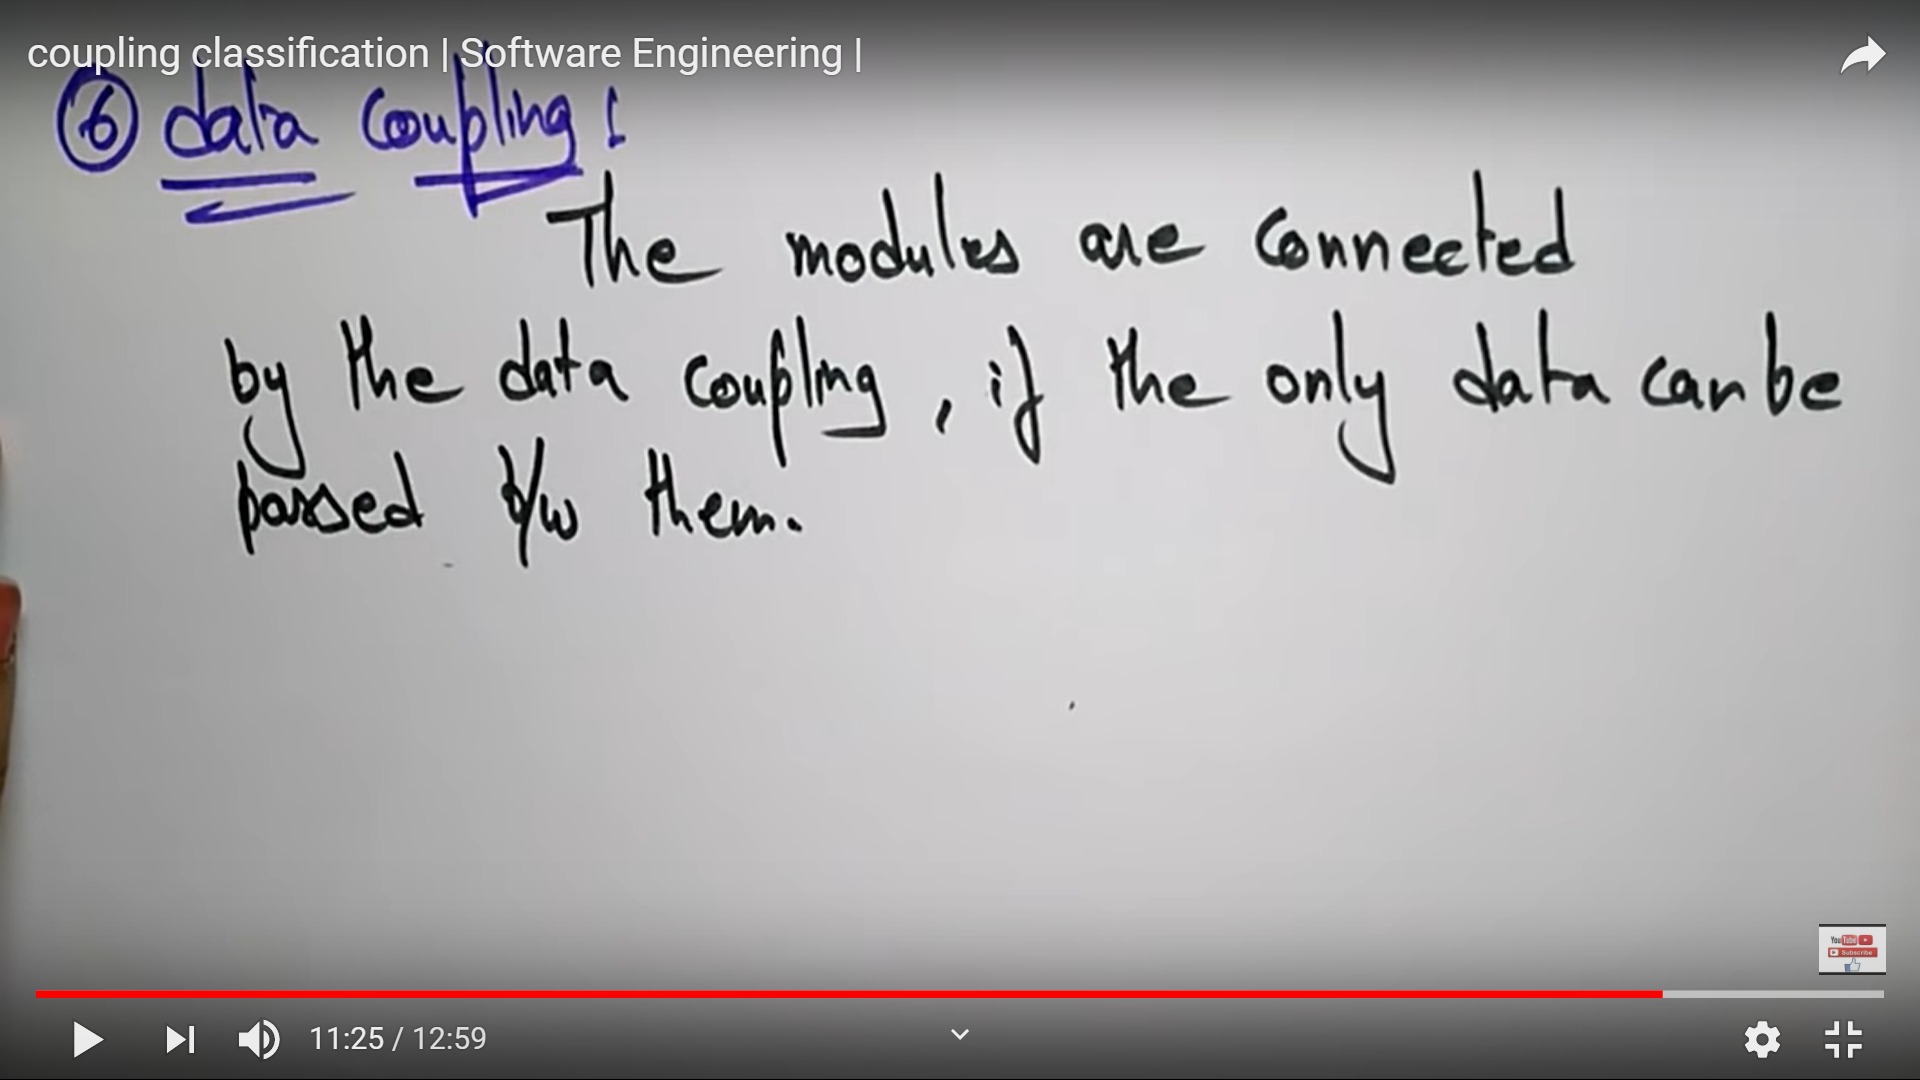 coupling classification | Software Engineering |
⑥ data coupling :
The modules are connected
by the data coupling , if the only data can be
passed b/w them.
YouTube
Subscribe
11:25 / 12:59